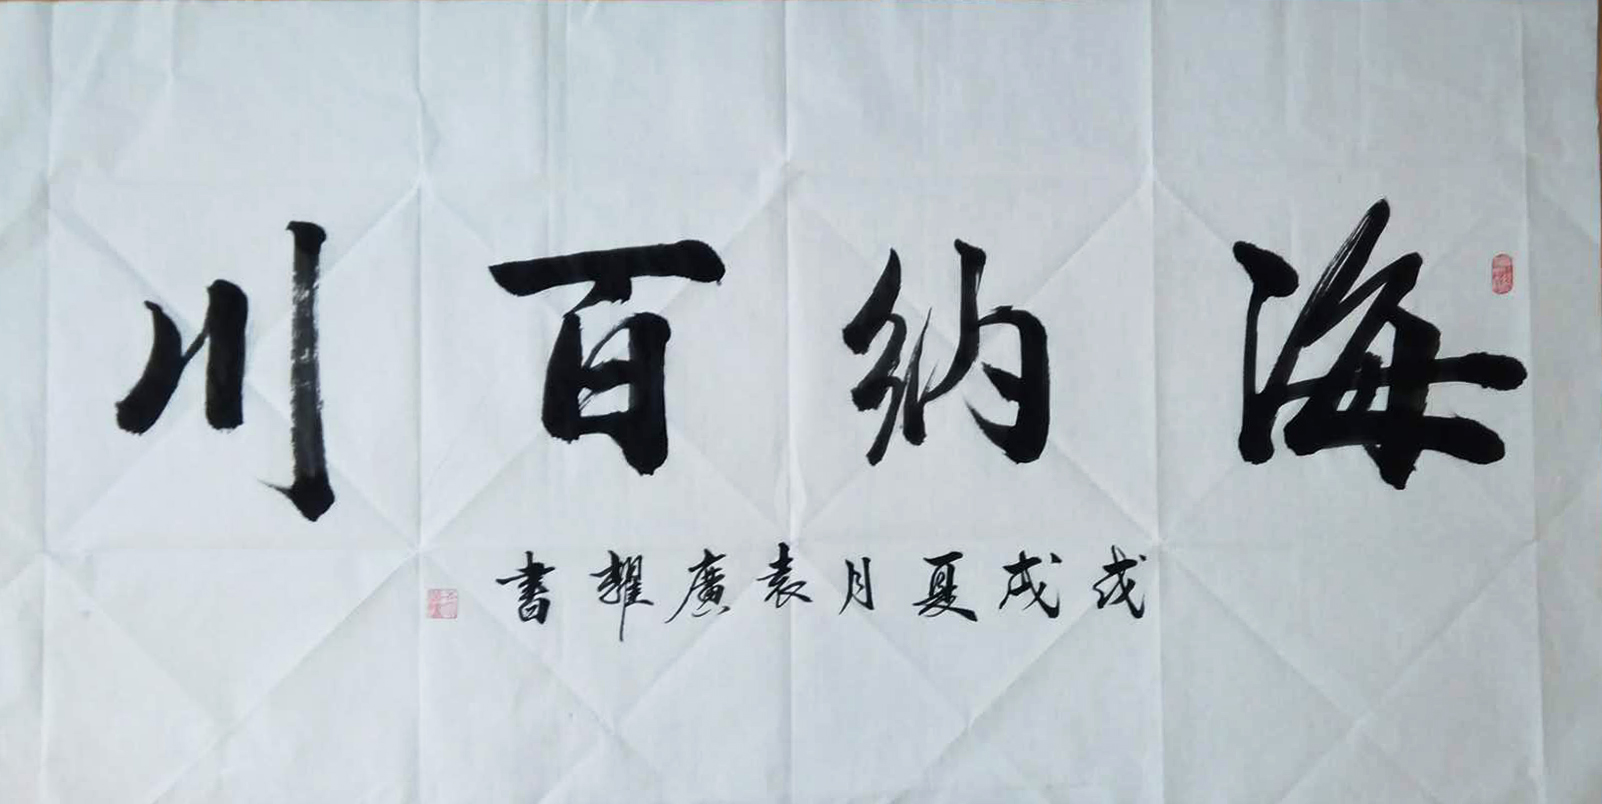 海納百川
戊戌夏月袁廣耀書